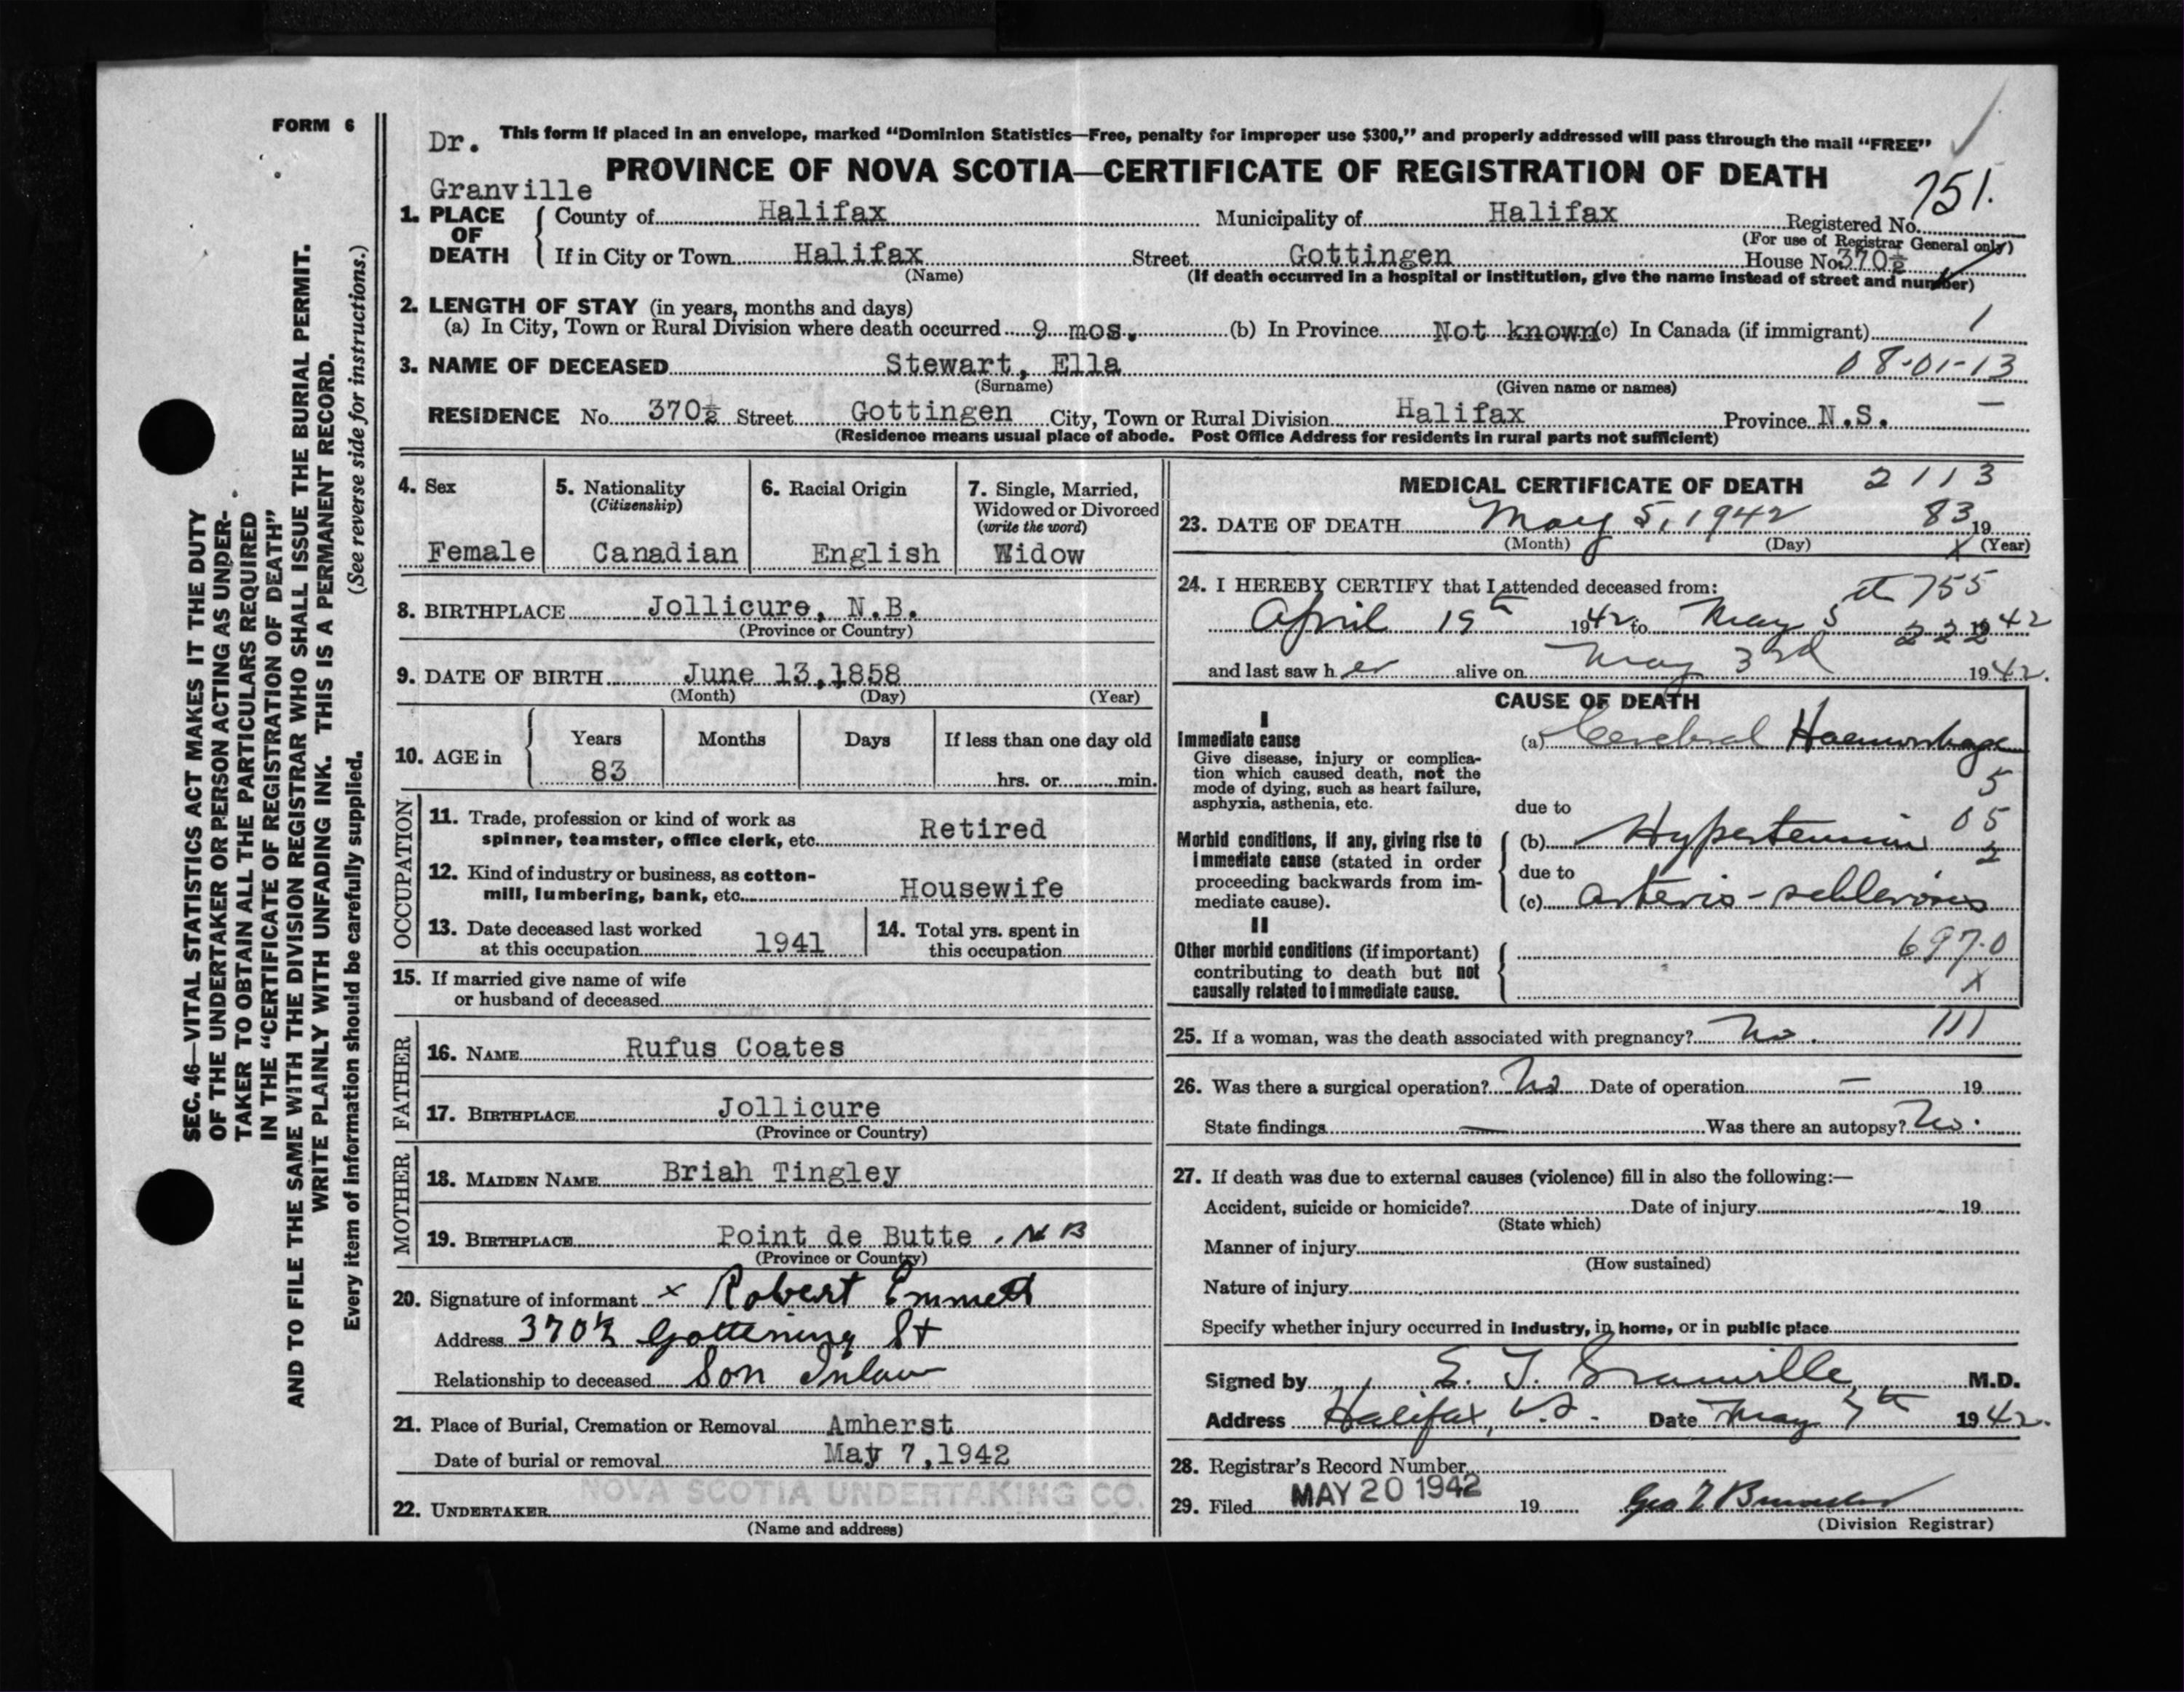 FORM 6
Dr. This form if placed in an envelope, marked "Dominion Statistics—Free, penalty for improper use $300," and properly addressed will pass through the mail "FREE"
PROVINCE OF NOVA SCOTIA—CERTIFICATE OF REGISTRATION OF DEATH
Granville
751.
1. PLACE OF DEATH
County of Halifax Municipality of Halifax Registered No.
(For use of Registrar General only)
If in City or Town Halifax Street Gottingen House No. 370½
(Name) (If death occurred in a hospital or institution, give the name instead of street and number)
2. LENGTH OF STAY (in years, months and days)
(a) In City, Town or Rural Division where death occurred 9 mos. (b) In Province Not known (c) In Canada (if immigrant) 1
3. NAME OF DECEASED Stewart, Ella 08-01-13
(Surname) (Given name or names)
RESIDENCE No. 370½ Street Gottingen City, Town or Rural Division Halifax Province N.S. —
(Residence means usual place of abode. Post Office Address for residents in rural parts not sufficient)
4. Sex
Female
5. Nationality
(Citizenship)
Canadian
6. Racial Origin
English
7. Single, Married,
Widowed or Divorced
(write the word)
Widow
8. BIRTHPLACE Jollicure, N.B.
(Province or Country)
9. DATE OF BIRTH June 13, 1858
(Month) (Day) (Year)
10. AGE in
Years Months Days If less than one day old
83 hrs. or min.
OCCUPATION
11. Trade, profession or kind of work as
spinner, teamster, office clerk, etc. Retired
12. Kind of industry or business, as cotton-
mill, lumbering, bank, etc. Housewife
13. Date deceased last worked
at this occupation 1941
14. Total yrs. spent in
this occupation
15. If married give name of wife
or husband of deceased
FATHER
16. NAME Rufus Coates
17. BIRTHPLACE Jollicure
(Province or Country)
MOTHER
18. MAIDEN NAME Briah Tingley
19. BIRTHPLACE Point de Butte. NB
(Province or Country)
20. Signature of informant x Robert Emmett
Address 370½ Gottening St
Relationship to deceased Son Inlaw
21. Place of Burial, Cremation or Removal Amherst
Date of burial or removal May 7, 1942
NOVA SCOTIA UNDERTAKING CO.
22. UNDERTAKER
(Name and address)
MEDICAL CERTIFICATE OF DEATH 2113
23. DATE OF DEATH May 5, 1942 83 19
(Month) (Day) x (Year)
24. I HEREBY CERTIFY that I attended deceased from:
755
April 19th 1942 to May 5th 1942
222
and last saw her alive on May 3rd 1942.
CAUSE OF DEATH
I
Immediate cause
Give disease, injury or complica-
tion which caused death, not the
mode of dying, such as heart failure,
asphyxia, asthenia, etc.
(a) Cerebral Haemorrhage
5
due to
05
Morbid conditions, if any, giving rise to
immediate cause (stated in order
proceeding backwards from im-
mediate cause).
(b) Hypertension
2
due to
(c) arterio-schlerosis
II
Other morbid conditions (if important)
contributing to death but not
causally related to immediate cause.
697.0
X
25. If a woman, was the death associated with pregnancy? No. 111
26. Was there a surgical operation? No Date of operation — 19
State findings — Was there an autopsy? No.
27. If death was due to external causes (violence) fill in also the following:—
Accident, suicide or homicide? Date of injury 19
(State which)
Manner of injury
(How sustained)
Nature of injury
Specify whether injury occurred in industry, in home, or in public place
Signed by E. T. Granville M.D.
Address Halifax, N.S. Date May 7th 1942.
28. Registrar's Record Number
29. Filed MAY 20 1942 19
(Division Registrar)
SEC. 46—VITAL STATISTICS ACT MAKES IT THE DUTY
OF THE UNDERTAKER OR PERSON ACTING AS UNDER-
TAKER TO OBTAIN ALL THE PARTICULARS REQUIRED
IN THE "CERTIFICATE OF REGISTRATION OF DEATH"
AND TO FILE THE SAME WITH THE DIVISION REGISTRAR WHO SHALL ISSUE THE BURIAL PERMIT.
WRITE PLAINLY WITH UNFADING INK. THIS IS A PERMANENT RECORD.
Every item of information should be carefully supplied. (See reverse side for instructions.)